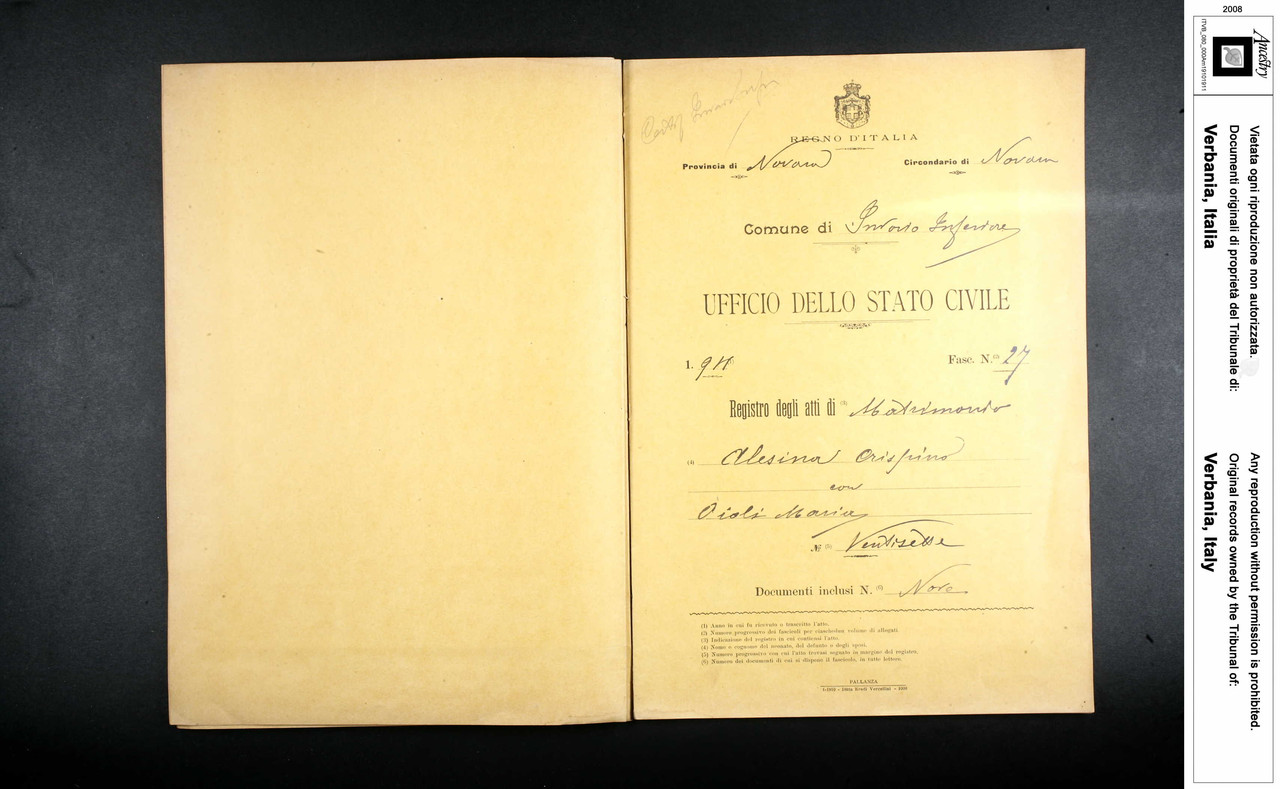 REGNO D'ITALIA
Provincia di Novara Circondario di Novara
Comune di Invorio Inferiore
UFFICIO DELLO STATO CIVILE
1. 911 (1) Fasc. N.° (2) 27
Registro degli atti di (3) Matrimonio
(4) Alesina Crispino
con
Pioli Maria
N.° (5) Ventisette
Documenti inclusi N. (6) Nove
(1) Anno in cui fu ricevuto o trascritto l'atto.
(2) Numero progressivo dei fascicoli per ciaschedun volume di allegati
(3) Indicazione del registro in cui contiensi l'atto.
(4) Nome e cognome del neonato, del defunto o degli sposi.
(5) Numero progressivo con cui l'atto trovasi segnato in margine del registro.
(6) Numero dei documenti di cui si dispone il fascicolo, in tutte lettere.
PALLANZA
Ditta Eredi Vercellini
2008
Ancestry
ITVB_080_000Am19101911
Vietata ogni riproduzione non autorizzata.
Documenti originali di proprietà del Tribunale di:
Verbania, Italia
Any reproduction without permission is prohibited.
Original records owned by the Tribunal of:
Verbania, Italy